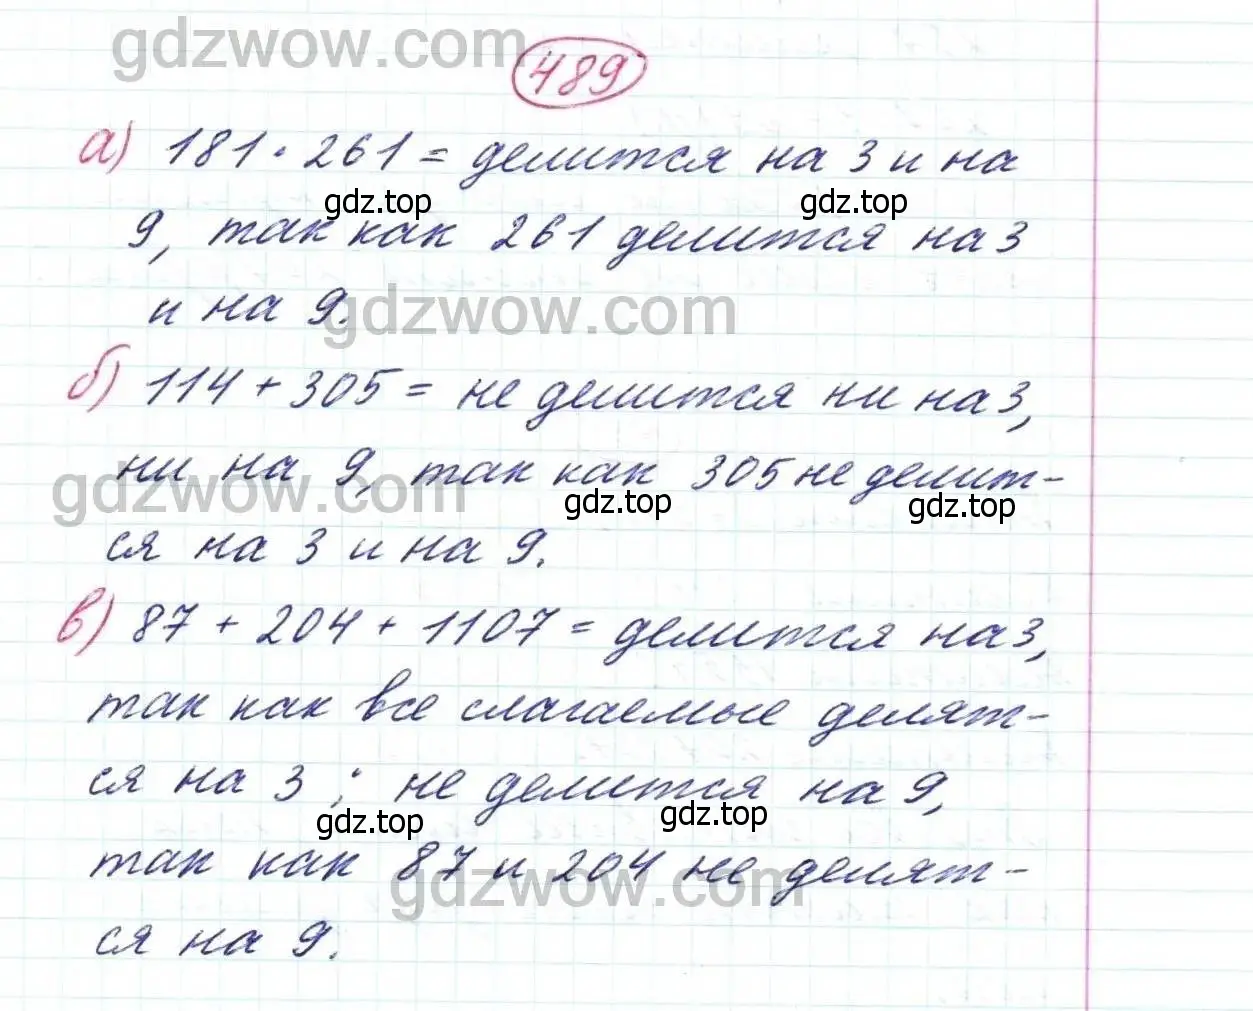 gdzwow.com
489
а) 181 · 261 = делится на 3 и на
gdz.top gdz.top
9, так как 261 делится на 3
и на 9.
gdzwow.com
б) 114 + 305 = не делится ни на 3,
ни на 9, так как 305 не делит-
gdzwow.com gdz.top gdz.top
ся на 3 и на 9.
в) 87 + 204 + 1107 = делится на 3,
так как все слагаемые делят-
ся на 3 ; не делится на 9,
gdz.top gdz.top
так как 87 и 204 не делят-
gdzwow.com
ся на 9.